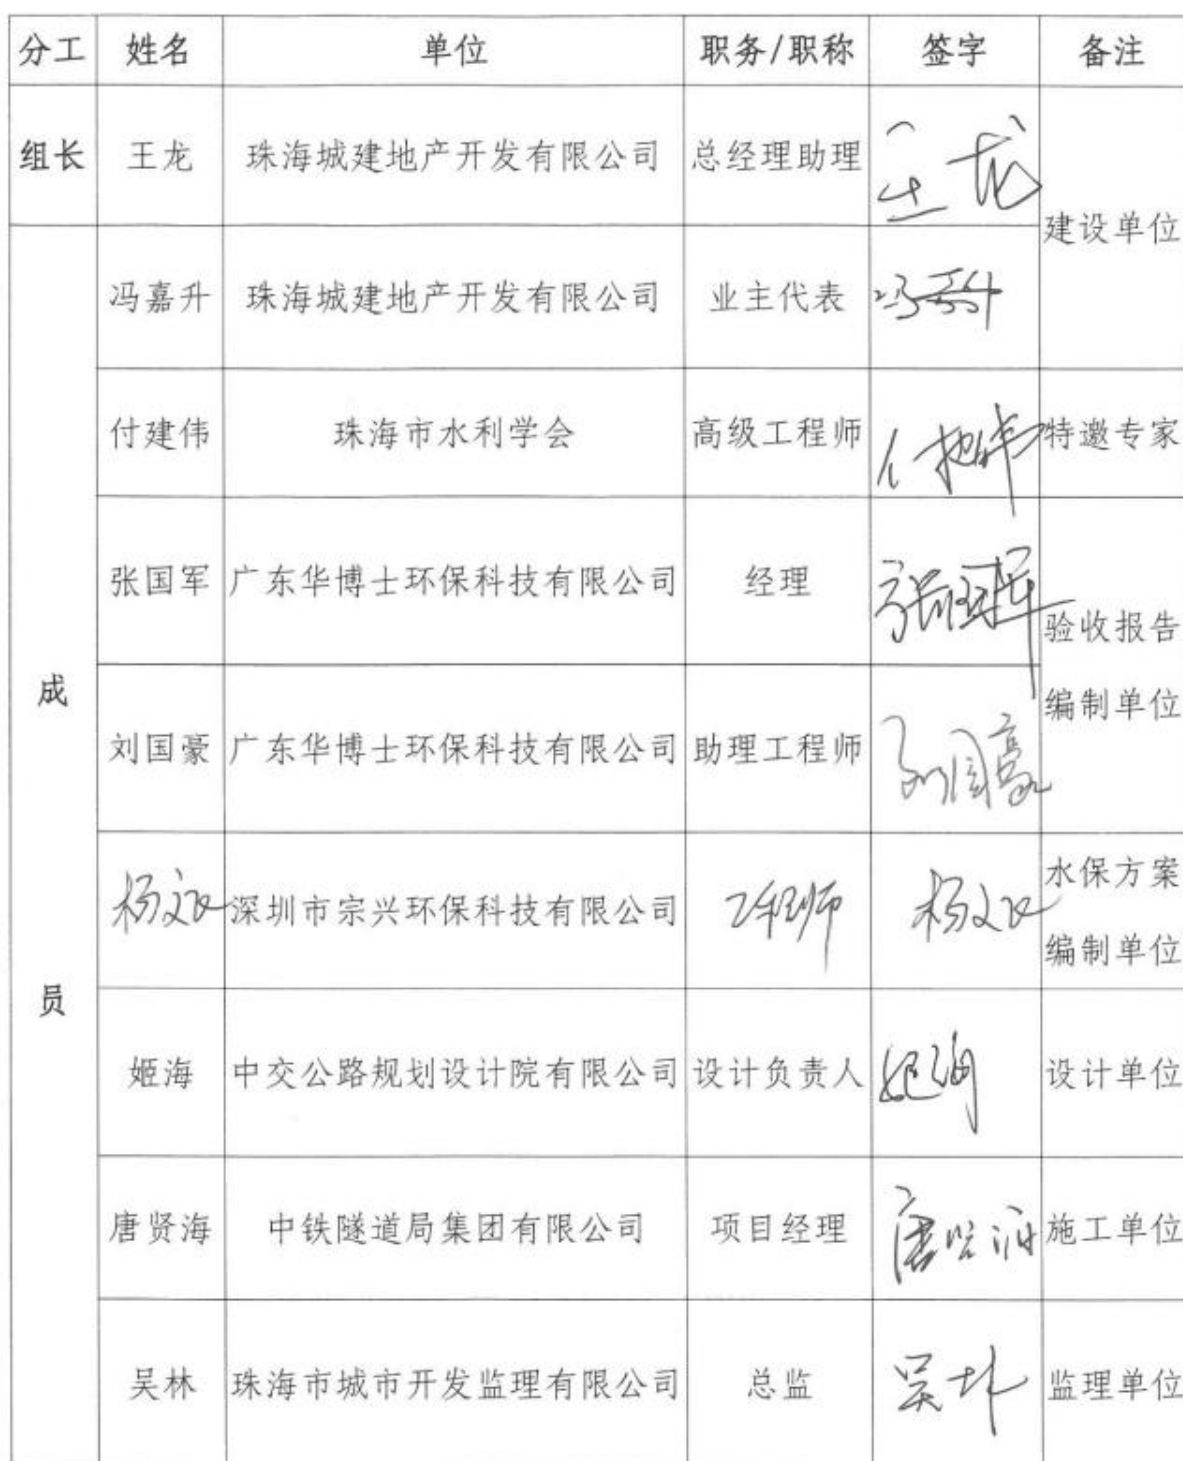 分工 姓名 单位 职务/职称 签字 备注
组长 王龙 珠海城建地产开发有限公司 总经理助理 王龙 建设单位
成员
冯嘉升 珠海城建地产开发有限公司 业主代表 冯嘉升
付建伟 珠海市水利学会 高级工程师 特邀专家
张国军 广东华博士环保科技有限公司 经理 张国军 验收报告
编制单位
刘国豪 广东华博士环保科技有限公司 助理工程师 刘国豪
深圳市宗兴环保科技有限公司 工程师 水保方案
编制单位
姬海 中交公路规划设计院有限公司 设计负责人 姬海 设计单位
唐贤海 中铁隧道局集团有限公司 项目经理 唐贤海 施工单位
吴林 珠海市城市开发监理有限公司 总监 吴林 监理单位